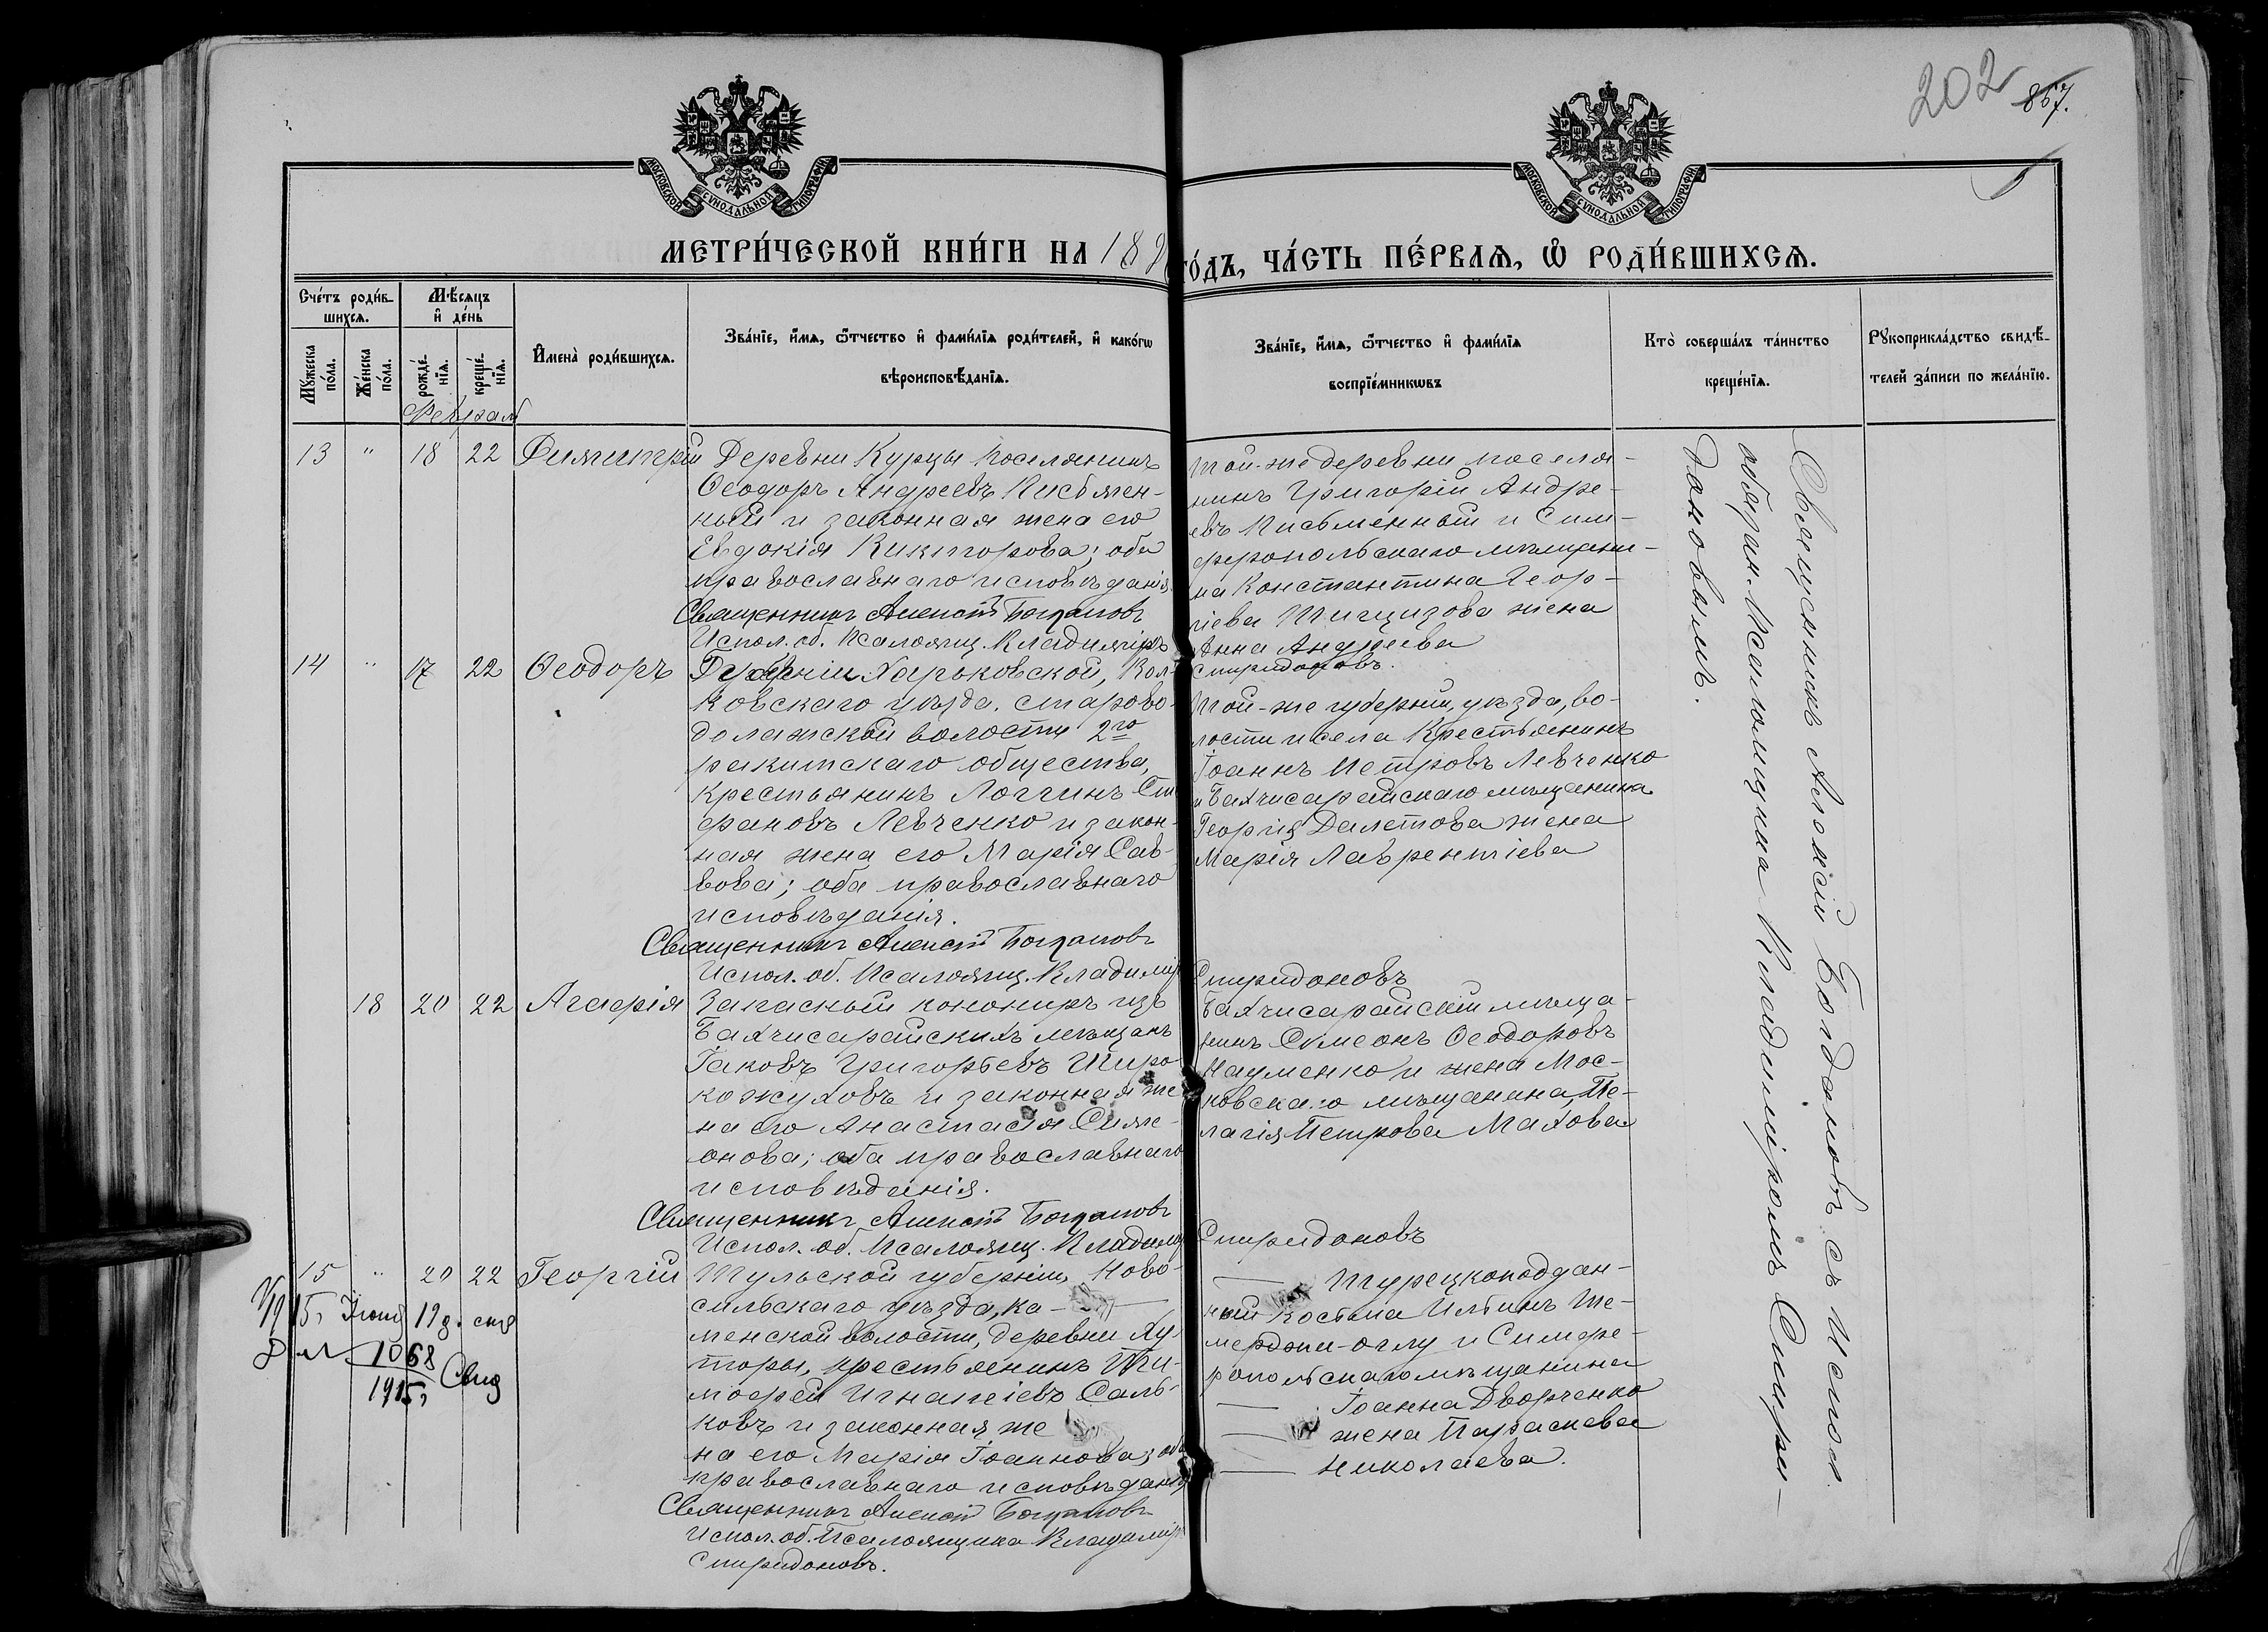 202
857.
МОСКОВСКОЙ СУНОДАЛЬНОЙ ТИПОГРАФІИ
МОСКОВСКОЙ СУНОДАЛЬНОЙ ТИПОГРАФІИ
МЕТРИ́ЧЕСКОЙ КНИ́ГИ НА 189
ГО́ДЪ, ЧА́СТЬ ПЕ́РВАѦ, Ѡ РОДИ́ВШИХСѦ.
Сче́тъ роди́в-
шихсѧ.
Мѣ́сѧцъ
и де́нь
Мꙋ́жеска по́ла.
Же́нска по́ла.
рожде́-
нїѧ.
креще́-
нїѧ.
Имена̀ роди́вшихсѧ.
Зва́нїе, и́мѧ, ѻ́тчество и фами́лїѧ роди́телей, и како́гѡ
вѣроисповѣ́данїѧ.
Зва́нїе, и́мѧ, ѻ́тчество и фами́лїѧ
воспрїе́мникѡвъ
Кто̀ соверша́лъ та́инство
креще́нїѧ.
Рꙋкоприкла́дство свидѣ́-
телей за́писи по жела́нїю.
Февраль
13 " 18 22 Димитрій
Деревни Курцы поселянинъ
Ѳеодоръ Андреевъ Письмен-
ный и законная жена его
Евдокія Викторова; оба
православнаго исповѣданія.
Священникъ Алексій Богдановъ
Испол. об. Псаломщ. Владиміръ
Той-же деревни поселя-
нинъ Григорій Андре-
евъ Письменный и Сим-
феропольскаго мѣщани-
на Константина Геор-
гіева жена
Анна Андреева
Спиридоновъ.
14 " 17 22 Ѳеодоръ
Губерніи Харьковской, Вал-
ковскаго уѣзда, старово-
долажской волости 2го
ракитскаго общества,
крестьянинъ Логгинъ Сте-
фановъ Левченко и закон-
ная жена его Марія Сав-
вова; оба православнаго
исповѣданія.
Священникъ Алексій Богдановъ
Испол. об. Псаломщ. Владимір
Той-же губерніи, уѣзда, во-
лости и села Крестьянинъ
Іоаннъ Петровъ Левченко
и Бахчисарайскаго мѣщанина
Георгія Далетова жена
Марія Лаврентіева
Спиридоновъ
18 20 22 Агафія
Запасный конониръ изъ
Бахчисарайскихъ мѣщанъ
Іаковъ Григорьевъ Широ-
кожуховъ и законная же-
на его Анастасія Симе-
онова; оба православнаго
исповѣданія.
Священникъ Алексій Богдановъ
Испол. об. Псаломщ. Владимір
Бахчисарайскій мѣща-
нинъ Симеонъ Ѳеодоровъ
Науменко и жена Мос-
ковскаго мѣщанина, Пе-
лагія Петрова Махова
Спиридоновъ
15 " 20 22 Георгій
Тульской губерніи Ново-
сильскаго уѣзда, ка-
менской волости, деревни Ху-
торы, крестьянинъ Ти-
мофей Игнатіевъ Саль-
ковъ и законная же
на его Марія Іоаннова; оба
православнаго исповѣданія
Священникъ Алексій Богдановъ
Испол. об. Псаломщика Владимір
Спиридоновъ.
Турецкоподдан-
ный Косьма Ильинъ Де-
мерджи-оглу и Симфе-
ропольскаго мѣщанина
Іоанна Дворченко
жена Параскева
Николаева.
1915, 19 д.
1068
1915, Свид
Священникъ Алексій Богдановъ съ испол.
обязан. Псаломщика Владиміромъ Спири-
доновымъ.